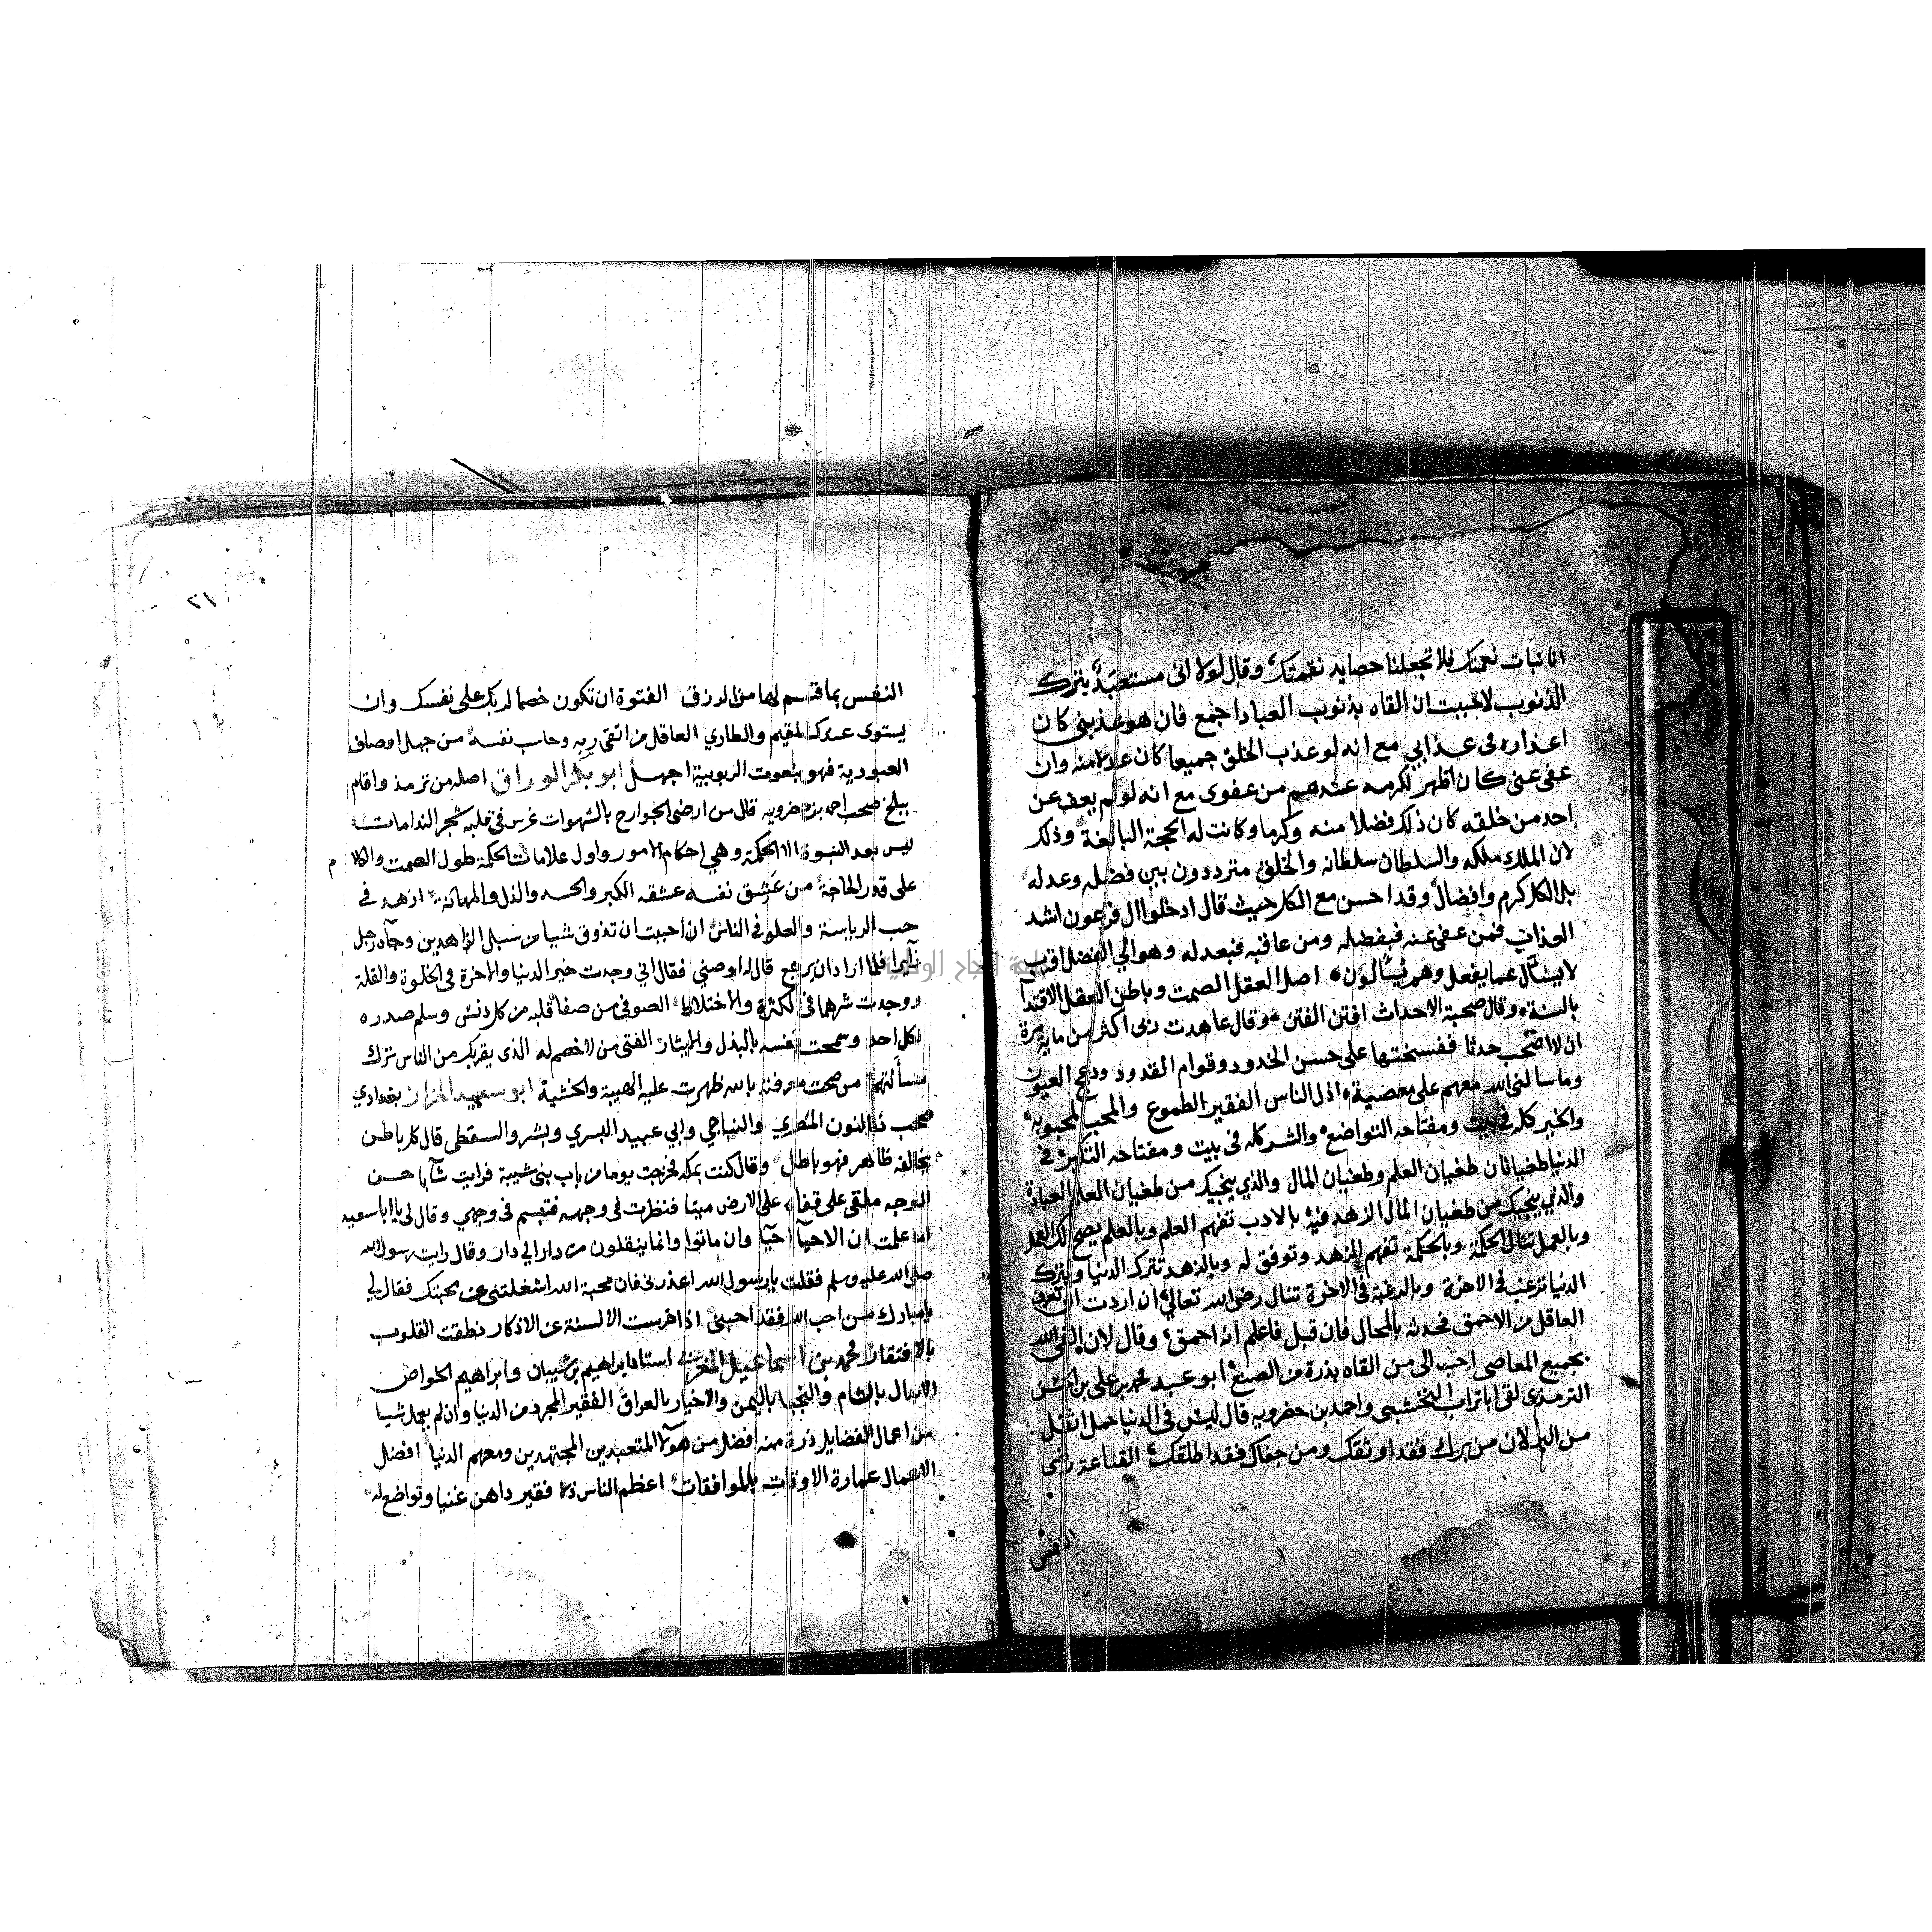 انا نبات نعمتك فلا تجعلنا حصايد نقمتك وقال لولا اني مستعبد بترك
الذنوب لاحببت ان القاه بذنوب العباد اجمع فان هو عذبني كان
اعذاره في عذابي مع انه لو عذب الخلق جميعا كان عدلا منه وان
عفى عني كان اظهر لكرمه عندهم من عفوى مع انه لو لم يعف عن
احد من خلقه كان ذلك فضلا منه وكرما وكانت له الحجة البالغة وذلك
لان الملك ملكه والسلطان سلطانه والخلق مترددون بين فضله وعدله
بل الكل كرم وافضال وقد احسن مع الكل حيث قال ادخلوا ال فرعون اشد
العذاب فمن عفى عنه فبفضله ومن عاقبه فبعدله وهو الي الفضل اقرب
لا يسأل عما يفعل وهم يسألون اصل العقل الصمت وباطن العقل الاقتدا
بالسنة وقال صحبة الاحداث افتن الفتن وقال عاهدت ربى اكثر من ماية مرة
ان لا اصحب حدثا ففسختها على حسن الخدود وقوام القدود ودعج العيون
وما سالنى الله معهم على معصية اذل الناس الفقير الطموع والمحب لمحبوبه
والخير كله في بيت ومفتاحه التواضع والشر كله فى بيت ومفتاحه التكبر في
الدنيا طغيانان طغيان العلم وطغيان المال والذي ينجيك من طغيان العلم العبادة
والذي ينجيك من طغيان المال الزهد فيه بالادب تفهم العلم وبالعلم يصح لك العمل
وبالعمل تنال الحكمة وبالحكمة تفهم الزهد وتوفق له وبالزهد تترك الدنيا وبترك
الدنيا ترغب فى الاخرة وبالرغبة فى الاخرة تنال رضى الله تعالى ان اردت ان تعرف
العاقل من الاحمق فحدثه بالمحال فان قبل فاعلم انه احمق وقال لان القى الله
بجميع المعاصى احب الى من القاه بذرة من الصنع ابو عبد الله محمد بن علي بن
الترمذى لقى ابا تراب النخشبى واحمد بن خضرويه قال ليس فى الدنيا حمل اثقل
من البر لان من برك فقد اوثقك ومن جفاك فقد اطلقك القناعة رضى
النفس
٢١
النفس بما قسم لها من الرزق الفتوة ان تكون خصما لربك على نفسك وان
يستوى عندك المقيم والطاري العاقل من اتقى ربه وحاسب نفسه من جهل اوصاف
العبودية فهو بنعوت الربوبية اجهل ابو بكر الوراق اصله من ترمذ واقام
ببلخ صحب احمد بن خضرويه قال من ارضى الجوارح بالشهوات غرس فى قلبه شجر الندامات
ليس بعد النبوة الا الحكمة وهي احكام الامور واول علامات الحكمة طول الصمت والكلام
على قدر الحاجة من عشق نفسه عشقه الكبر والحسد والذل والمهانة ازهد في
حب الرياسة والعلو فى الناس ان احببت ان تذوق شيا من سبل الزاهدين وجآه رجل
زايرا فلما اراد ان يرجع قال له اوصني فقال اني وجدت خير الدنيا والاخرة فى الخلوة والقلة
ووجدت شرهما فى الكثرة والاختلاط الصوفى من صفا قلبه من كل دنس وسلم صدره
لكل احد وسمحت نفسه بالبذل والايثار الفتى من لا خصم له الذى يقربك من الناس ترك
مسألتهم من صحت معرفته بالله ظهرت عليه الهيبة والخشية ابو سعيد الخراز بغدادي
صحب ذا النون المصري والنباجي وابي عبيد البسري وبشر والسقطى قال كل باطن
يخالفه ظاهر فهو باطل وقال كنت بمكه فخرجت يوما من باب بنى شيبة فرايت شآبا حسن
الوجه ملقى على قفاه على الارض ميتا فنظرت فى وجهه فتبسم فى وجهي وقال لى يا ابا سعيد
اما علمت ان الاحيآ احيآ وان ماتوا وانما ينقلون من دار الي دار وقال رايت رسول الله
صلى الله عليه وسلم فقلت يا رسول الله اعذرنى فان محبة الله اشغلتنى عن محبتك فقال لي
يا مبارك من احب الله فقد احبنى اذا خرست الالسنة عن الاذكار نطقت القلوب
بالافتقار محمد بن اسماعيل المغربي استاذ ابراهيم بن شيبان وابراهيم الخواص
الابدال بالشام والنجبا باليمن والاخيار بالعراق الفقير المجرد من الدنيا وان لم يعمل شيا
من اعمال الفضايل ذرة منه افضل من هولآ المتعبدين المجتهدين ومعهم الدنيا افضل
الاعمال عمارة الاوقات بالموافقات اعظم الناس ذلا فقير داهن غنيا وتواضع له